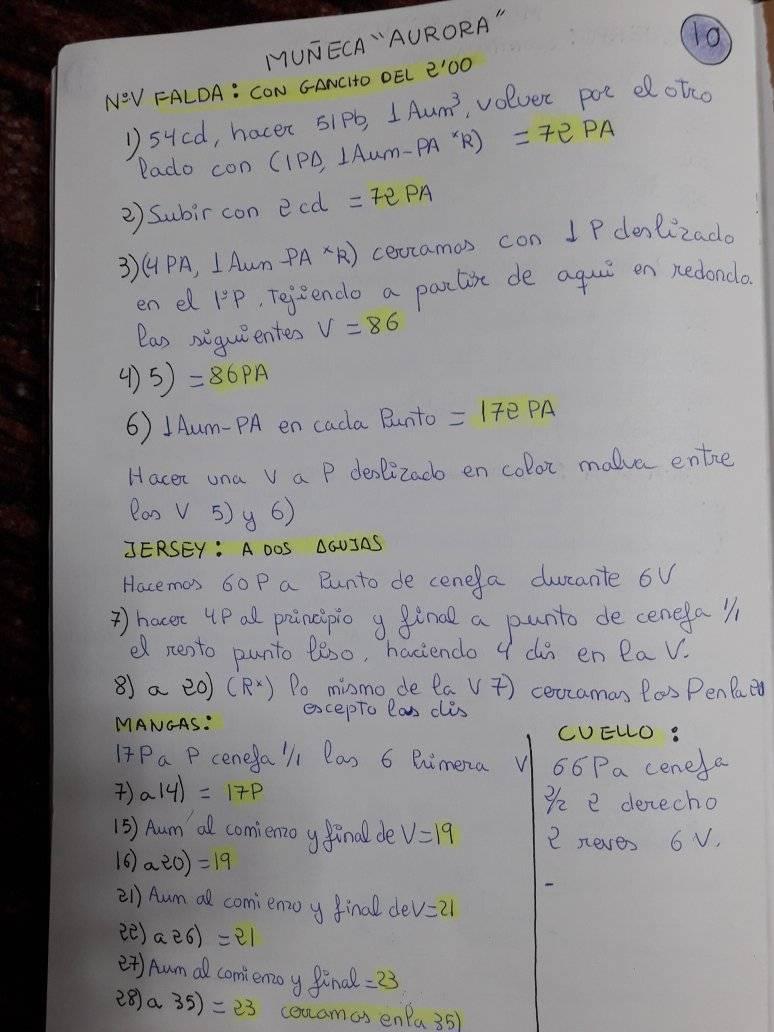 10
MUÑECA "AURORA"
NºV FALDA: CON GANCHO DEL 2'00
1) 54cd, hacer 51Pb, 1 Aum³, volver por el otro
lado con (1PA, 1Aum-PA ˣR) = 72 PA
2) Subir con 2cd = 72 PA
3) (4 PA, 1 Aum-PA ˣR) cerramos con 1 P deslizado
en el 1ºP. Tejiendo a partir de aqui en redondo.
las siguientes V = 86
4) 5) = 86PA
6) 1Aum-PA en cada Punto = 172 PA
Hacer una V a P deslizado en color malva entre
las V 5) y 6)
JERSEY: A DOS AGUJAS
Hacemos 60P a Punto de cenefa durante 6V
7) hacer 4P al principio y final a punto de cenefa 1/1
el resto punto liso, haciendo 4 dis en la V.
8) a 20) (Rˣ) lo mismo de la V 7) cerramos los P en la 20
escepto las dis
MANGAS:
17P a P cenefa 1/1 las 6 Primera V
7) a 14) = 17P
15) Aum al comienzo y final de V=19
16) a 20) = 19
21) Aum al comienzo y final de V=21
22) a 26) = 21
27) Aum al comienzo y final = 23
28) a 35) = 23 cerramos en la 35)
CUELLO:
66P a cenefa
2/2 2 derecho
2 reves 6 V.
-